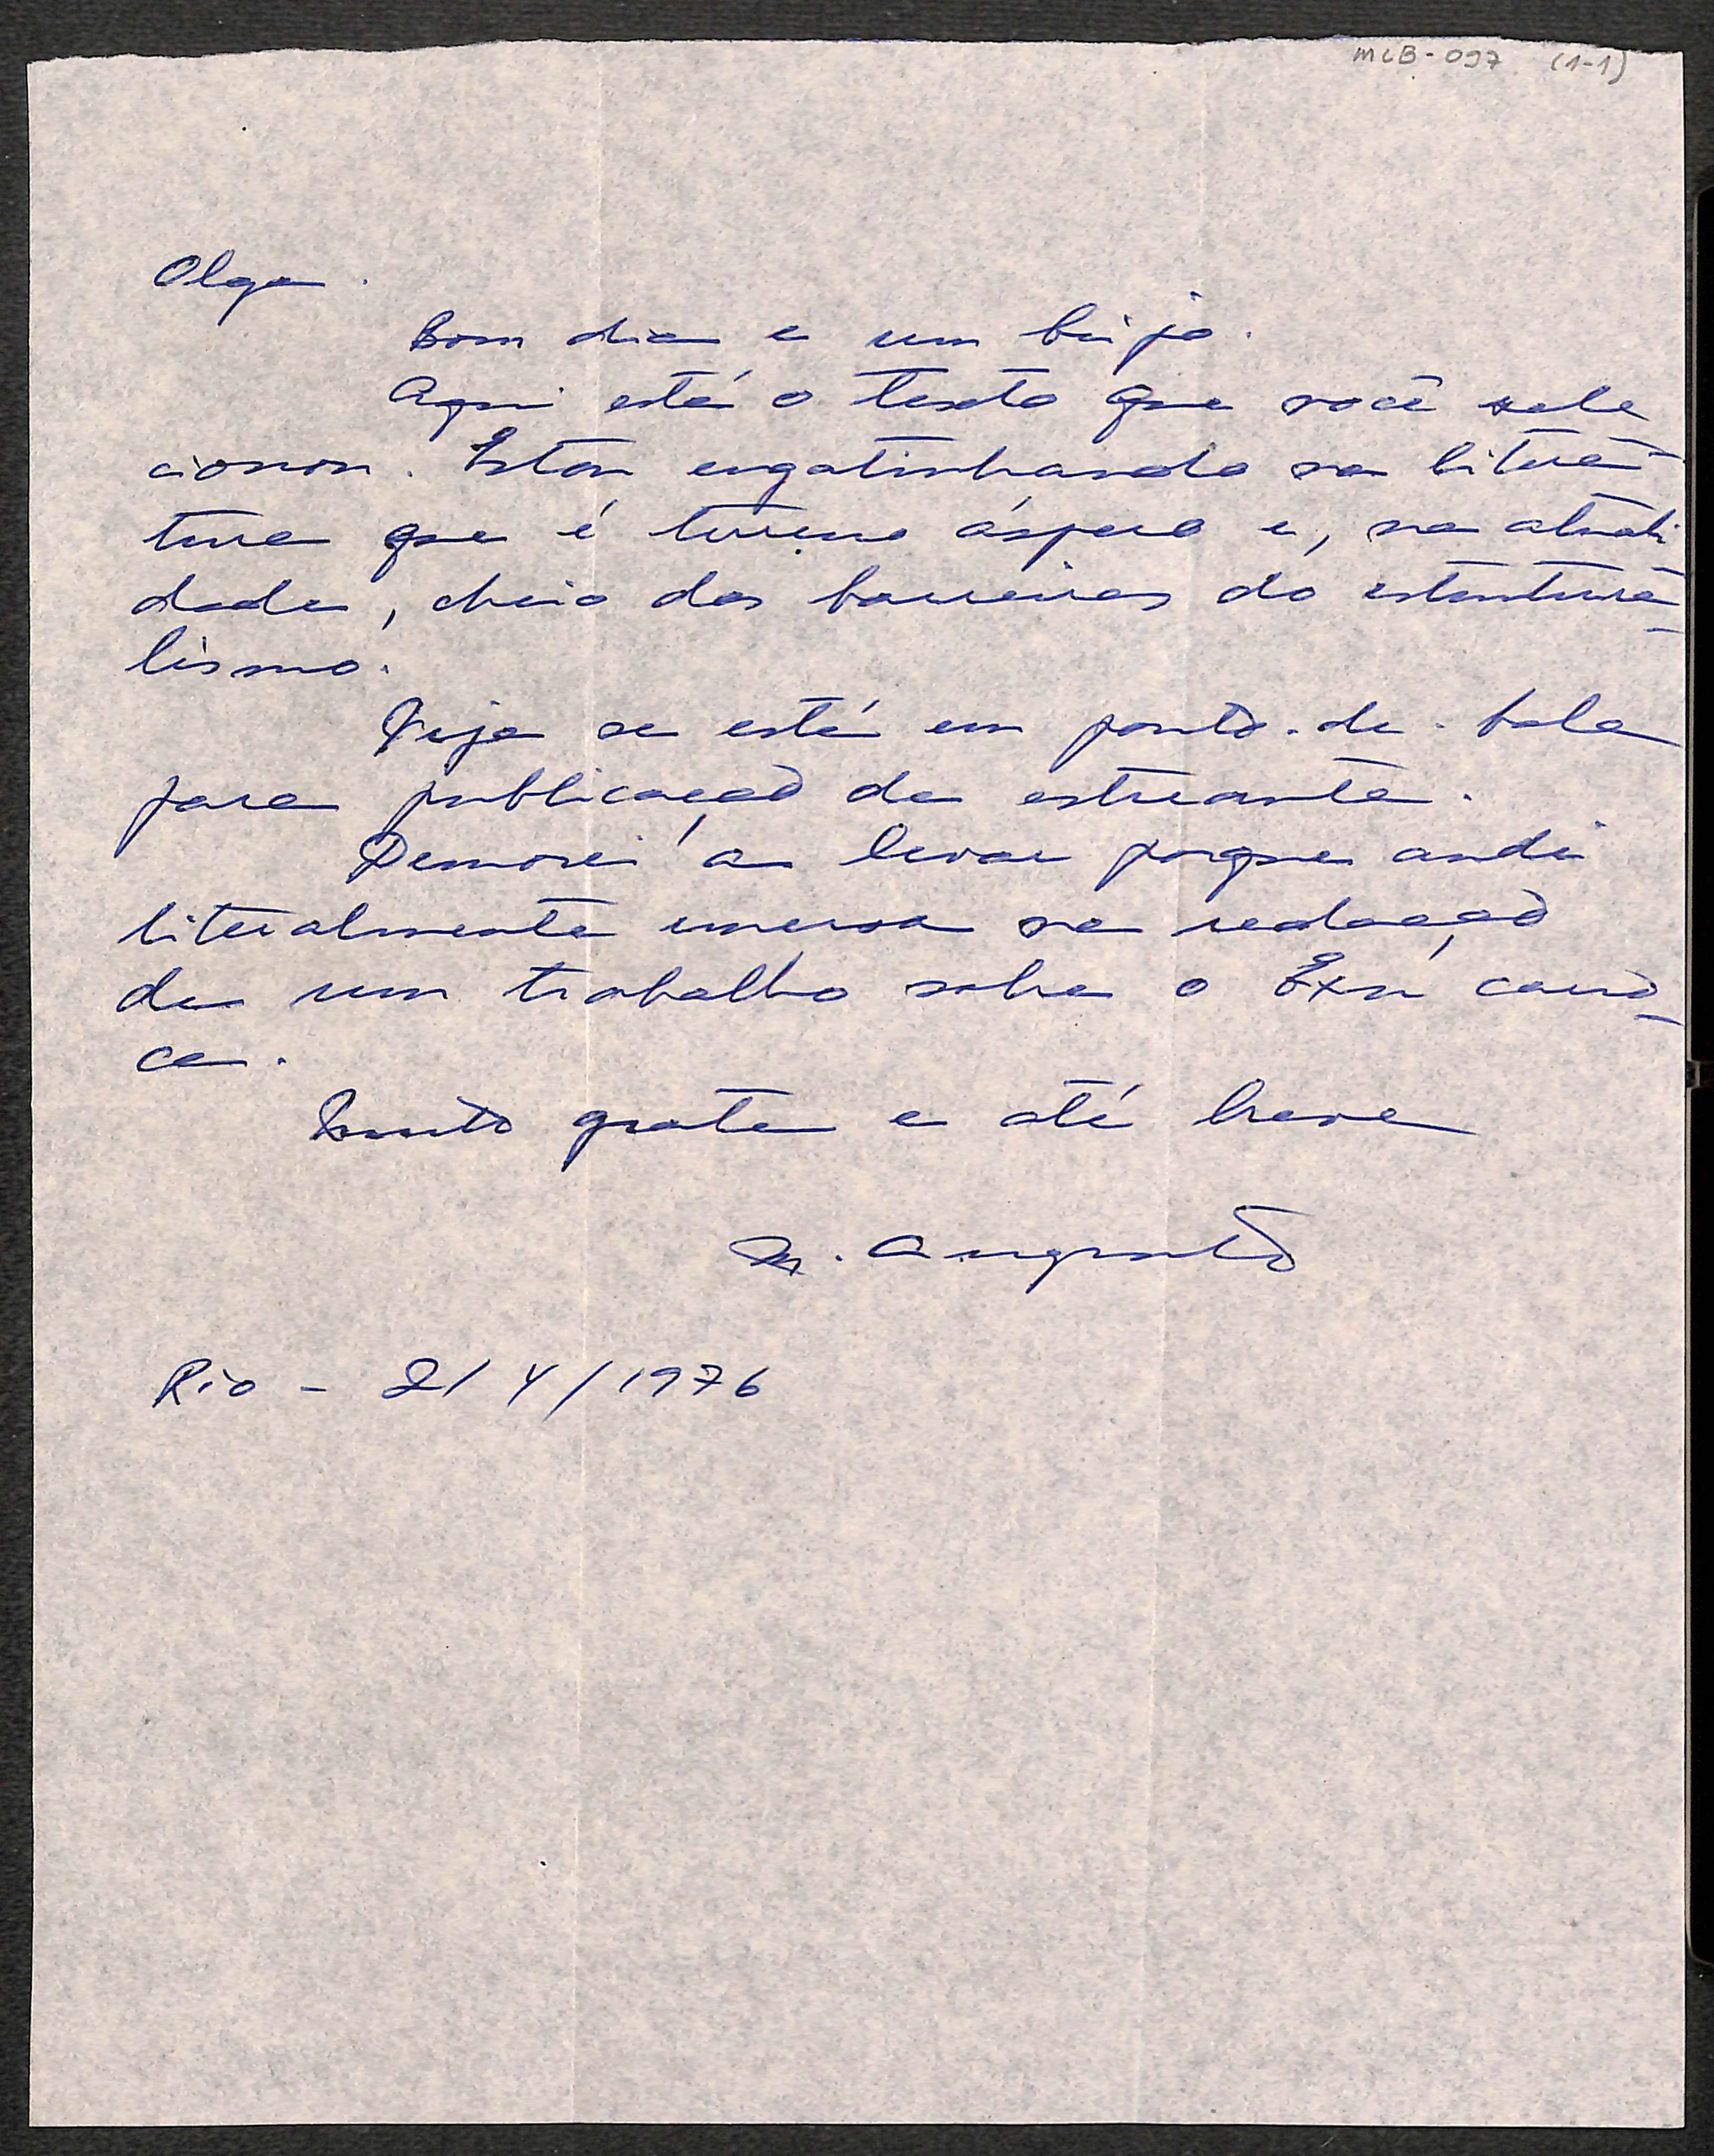 MLB-097 (1-1)
Olga.
Bom dia e um beijo.
Aqui está o texto que você sele
cionou. Estou engatinhando na litera-
tura que é terreno áspero e, na atuali
dade, cheio das barreiras do estrutura-
lismo.
Veja se está em ponto-de-bala
para publicação de estreante.
Demorei a levar porque andei
literalmente imersa na redação
de um trabalho sobre o Exu cario-
ca.
Muito grata e até breve
M. Augusta
Rio - 2/4/1976